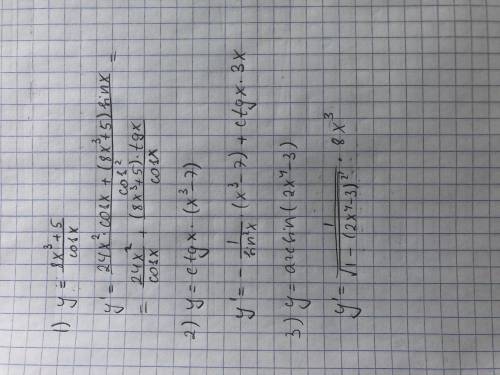 1) y = (8x³+5)/cosx
y' = (24x²·cosx + (8x³+5) sinx)/cos² =
= 24x²/cosx + ((8x³+5)·tgx)/cosx
2) y = ctgx · (x³-7)
y' = -1/sin²x · (x³-7) + ctgx · 3x
3) y = arcsin(2x⁴-3)
y' = 1/√(1-(2x⁴-3)²) · 8x³